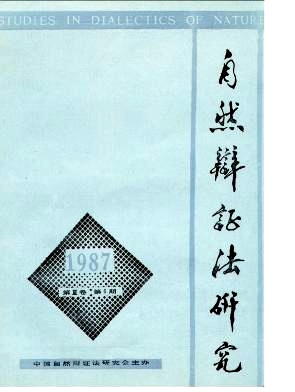 STUDIES IN DIALECTICS OF NATURE
自然辩证法研究
1987
第Ⅲ卷 第
期
中国自然辩证法研究会主办